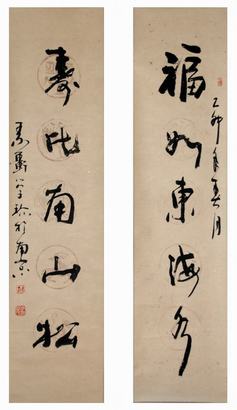 福如東海水
乙卯年春月
壽比南山松
於南京